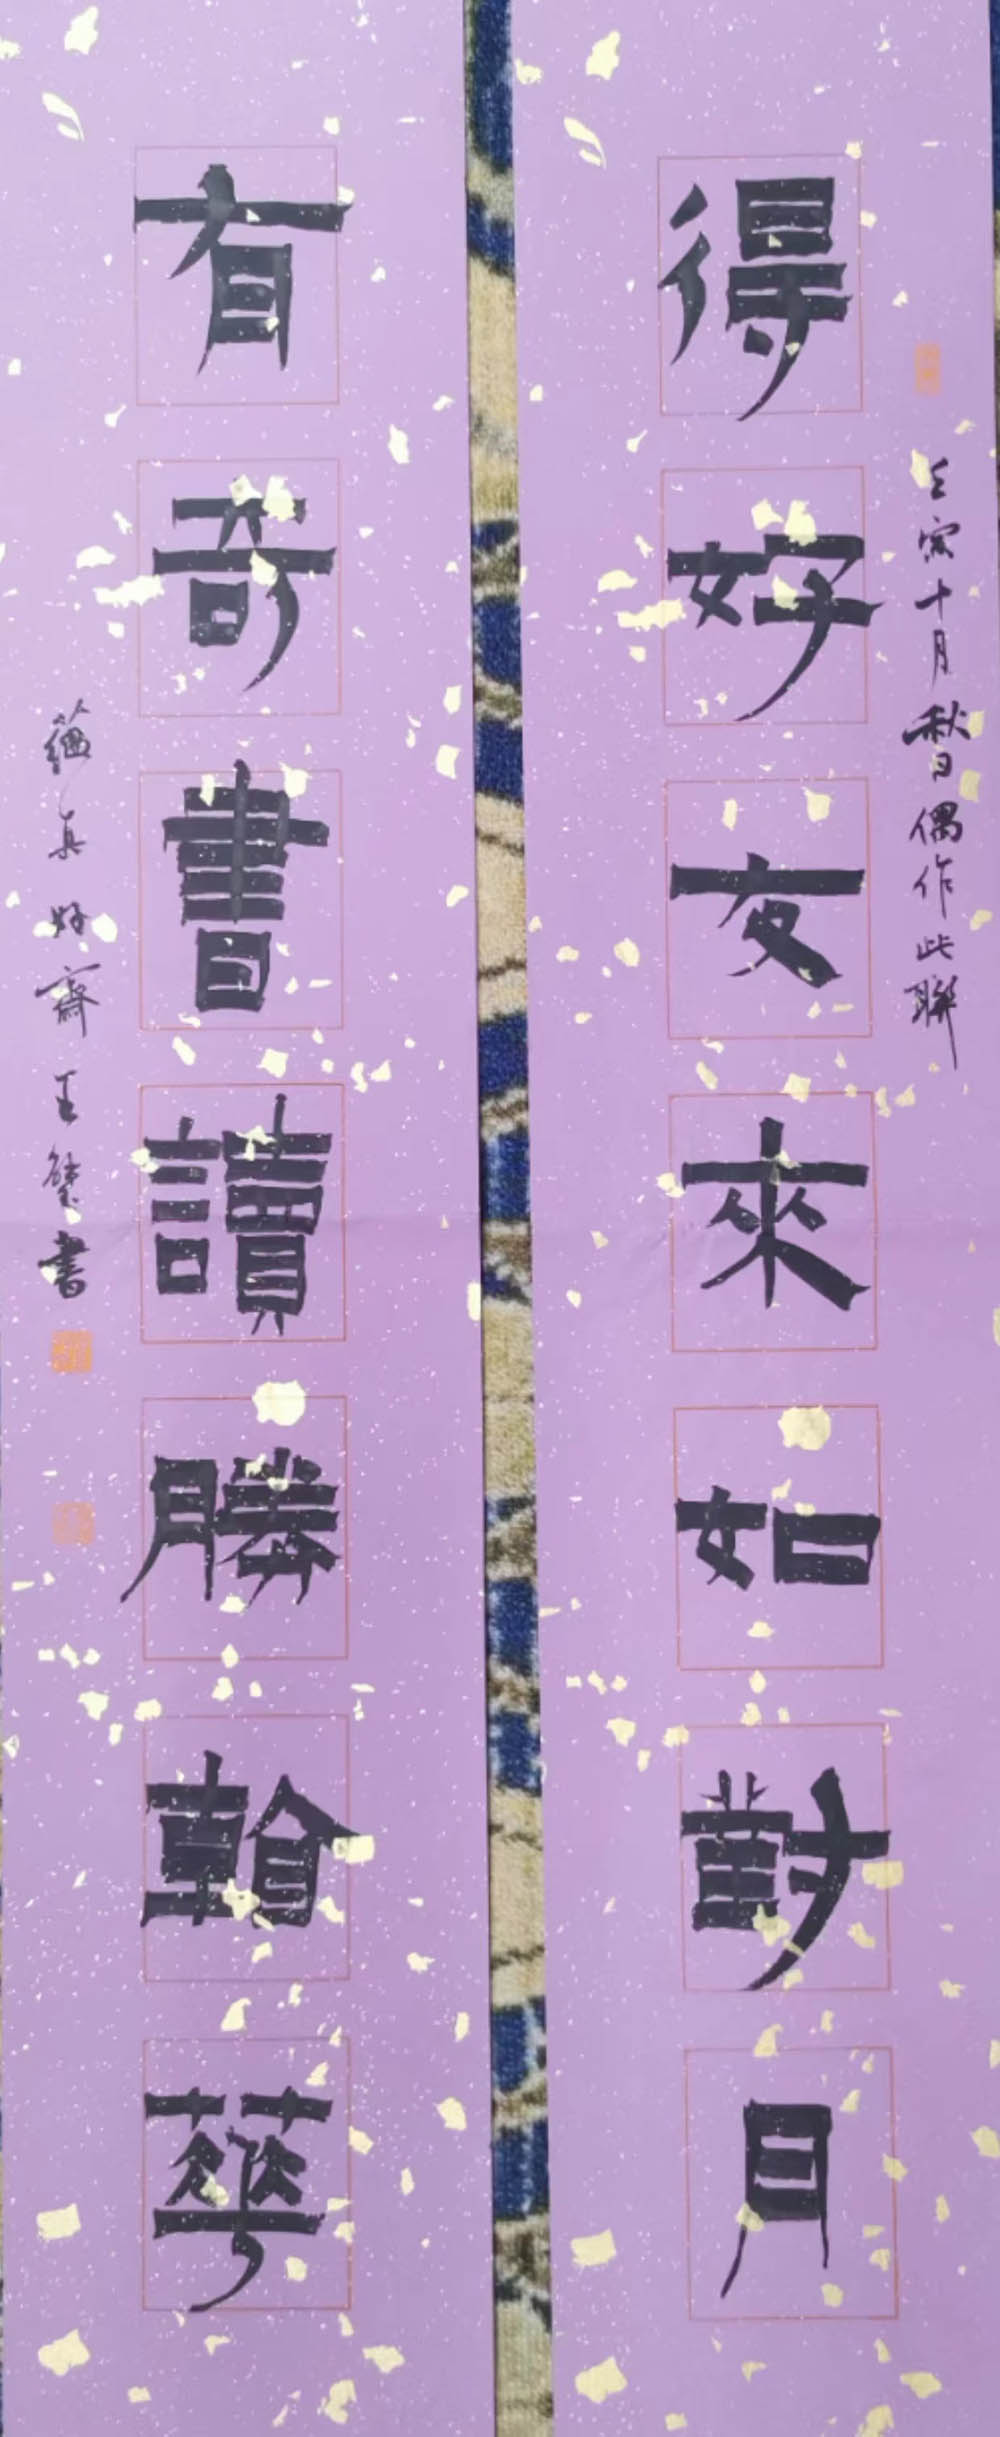 壬寅十月秋偶作此聯
得好友來如對月
有奇書讀勝華
真好齋王書